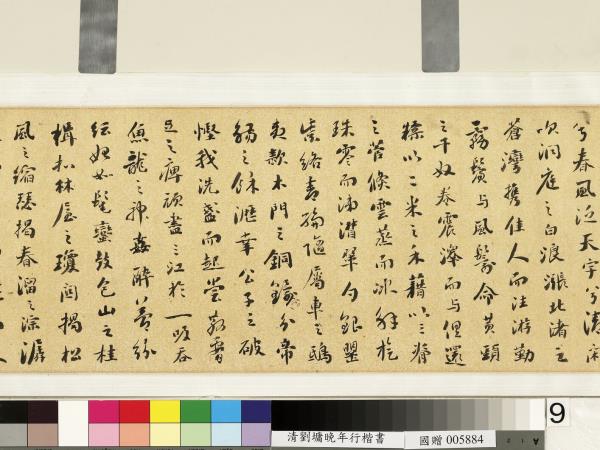 兮春風泛天宇兮清閑
吹洞庭之白浪漲北渚之
蒼灣攜佳人而往游勤
霧鬢与風鬟命黃頭
之千奴卷震澤而与俱還
糅以二米之禾藉以三脊
之菅倏雲蒸而冰解旋
珠零而涕潸翠勺銀罌
紫絡青綸隨屬車之鴟
夷款木門之銅鐶分帝
觴之餘瀝幸公子之破
慳我洗盞而起嘗散腰
足之痺頑盡三江於一吸吞
魚龍之神姦醉夢紛
紜始如髦蠻鼓包山之桂
楫松林屋之瓊關揭松
風之縮瑟揭春溜之淙潺
清劉墉晚年行楷書
國贈 005884
9
A 1 2